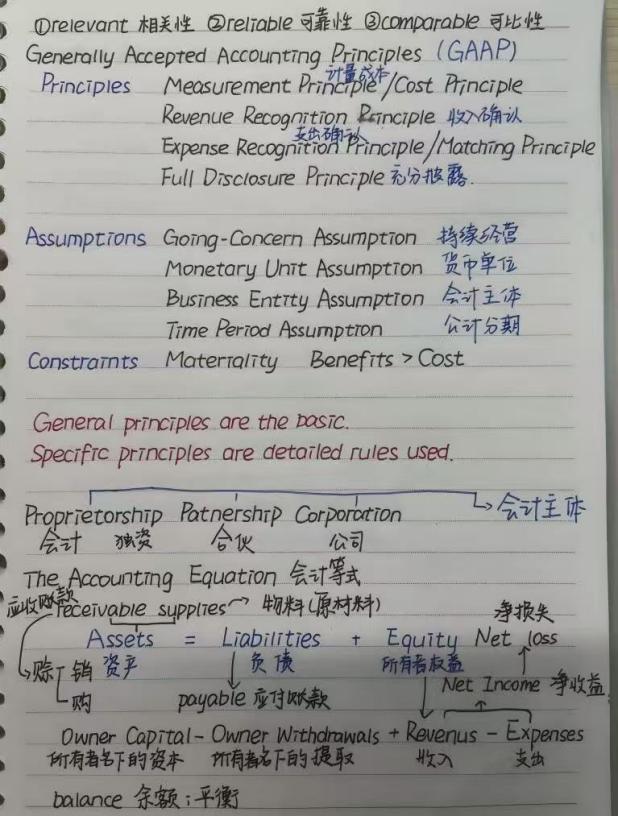 ①relevant 相关性 ②reliable 可靠性 ③comparable 可比性
Generally Accepted Accounting Principles (GAAP)
计量成本
Principles Measurement Principle/Cost Principle
Revenue Recognition Principle 收入确认
支出确认
Expense Recognition Principle/Matching Principle
Full Disclosure Principle 充分披露.
Assumptions Going-Concern Assumption 持续经营
Monetary Unit Assumption 货币单位
Business Entity Assumption 会计主体
Time Period Assumption 会计分期
Constraints Materiality Benefits > Cost
General principles are the basic.
Specific principles are detailed rules used.
→会计主体
Proprietorship Patnership Corporation
会计 独资 合伙 公司
The Accounting Equation 会计等式
应收账款
receivable supplies→物料(原材料) 净损失
Assets = Liabilities + Equity Net loss
→赊 销 资产 负债 所有者权益
购 payable 应付账款 Net Income 净收益
Owner Capital - Owner Withdrawals + Revenus - Expenses
所有者名下的资本 所有者名下的提取 收入 支出
balance 余额;平衡